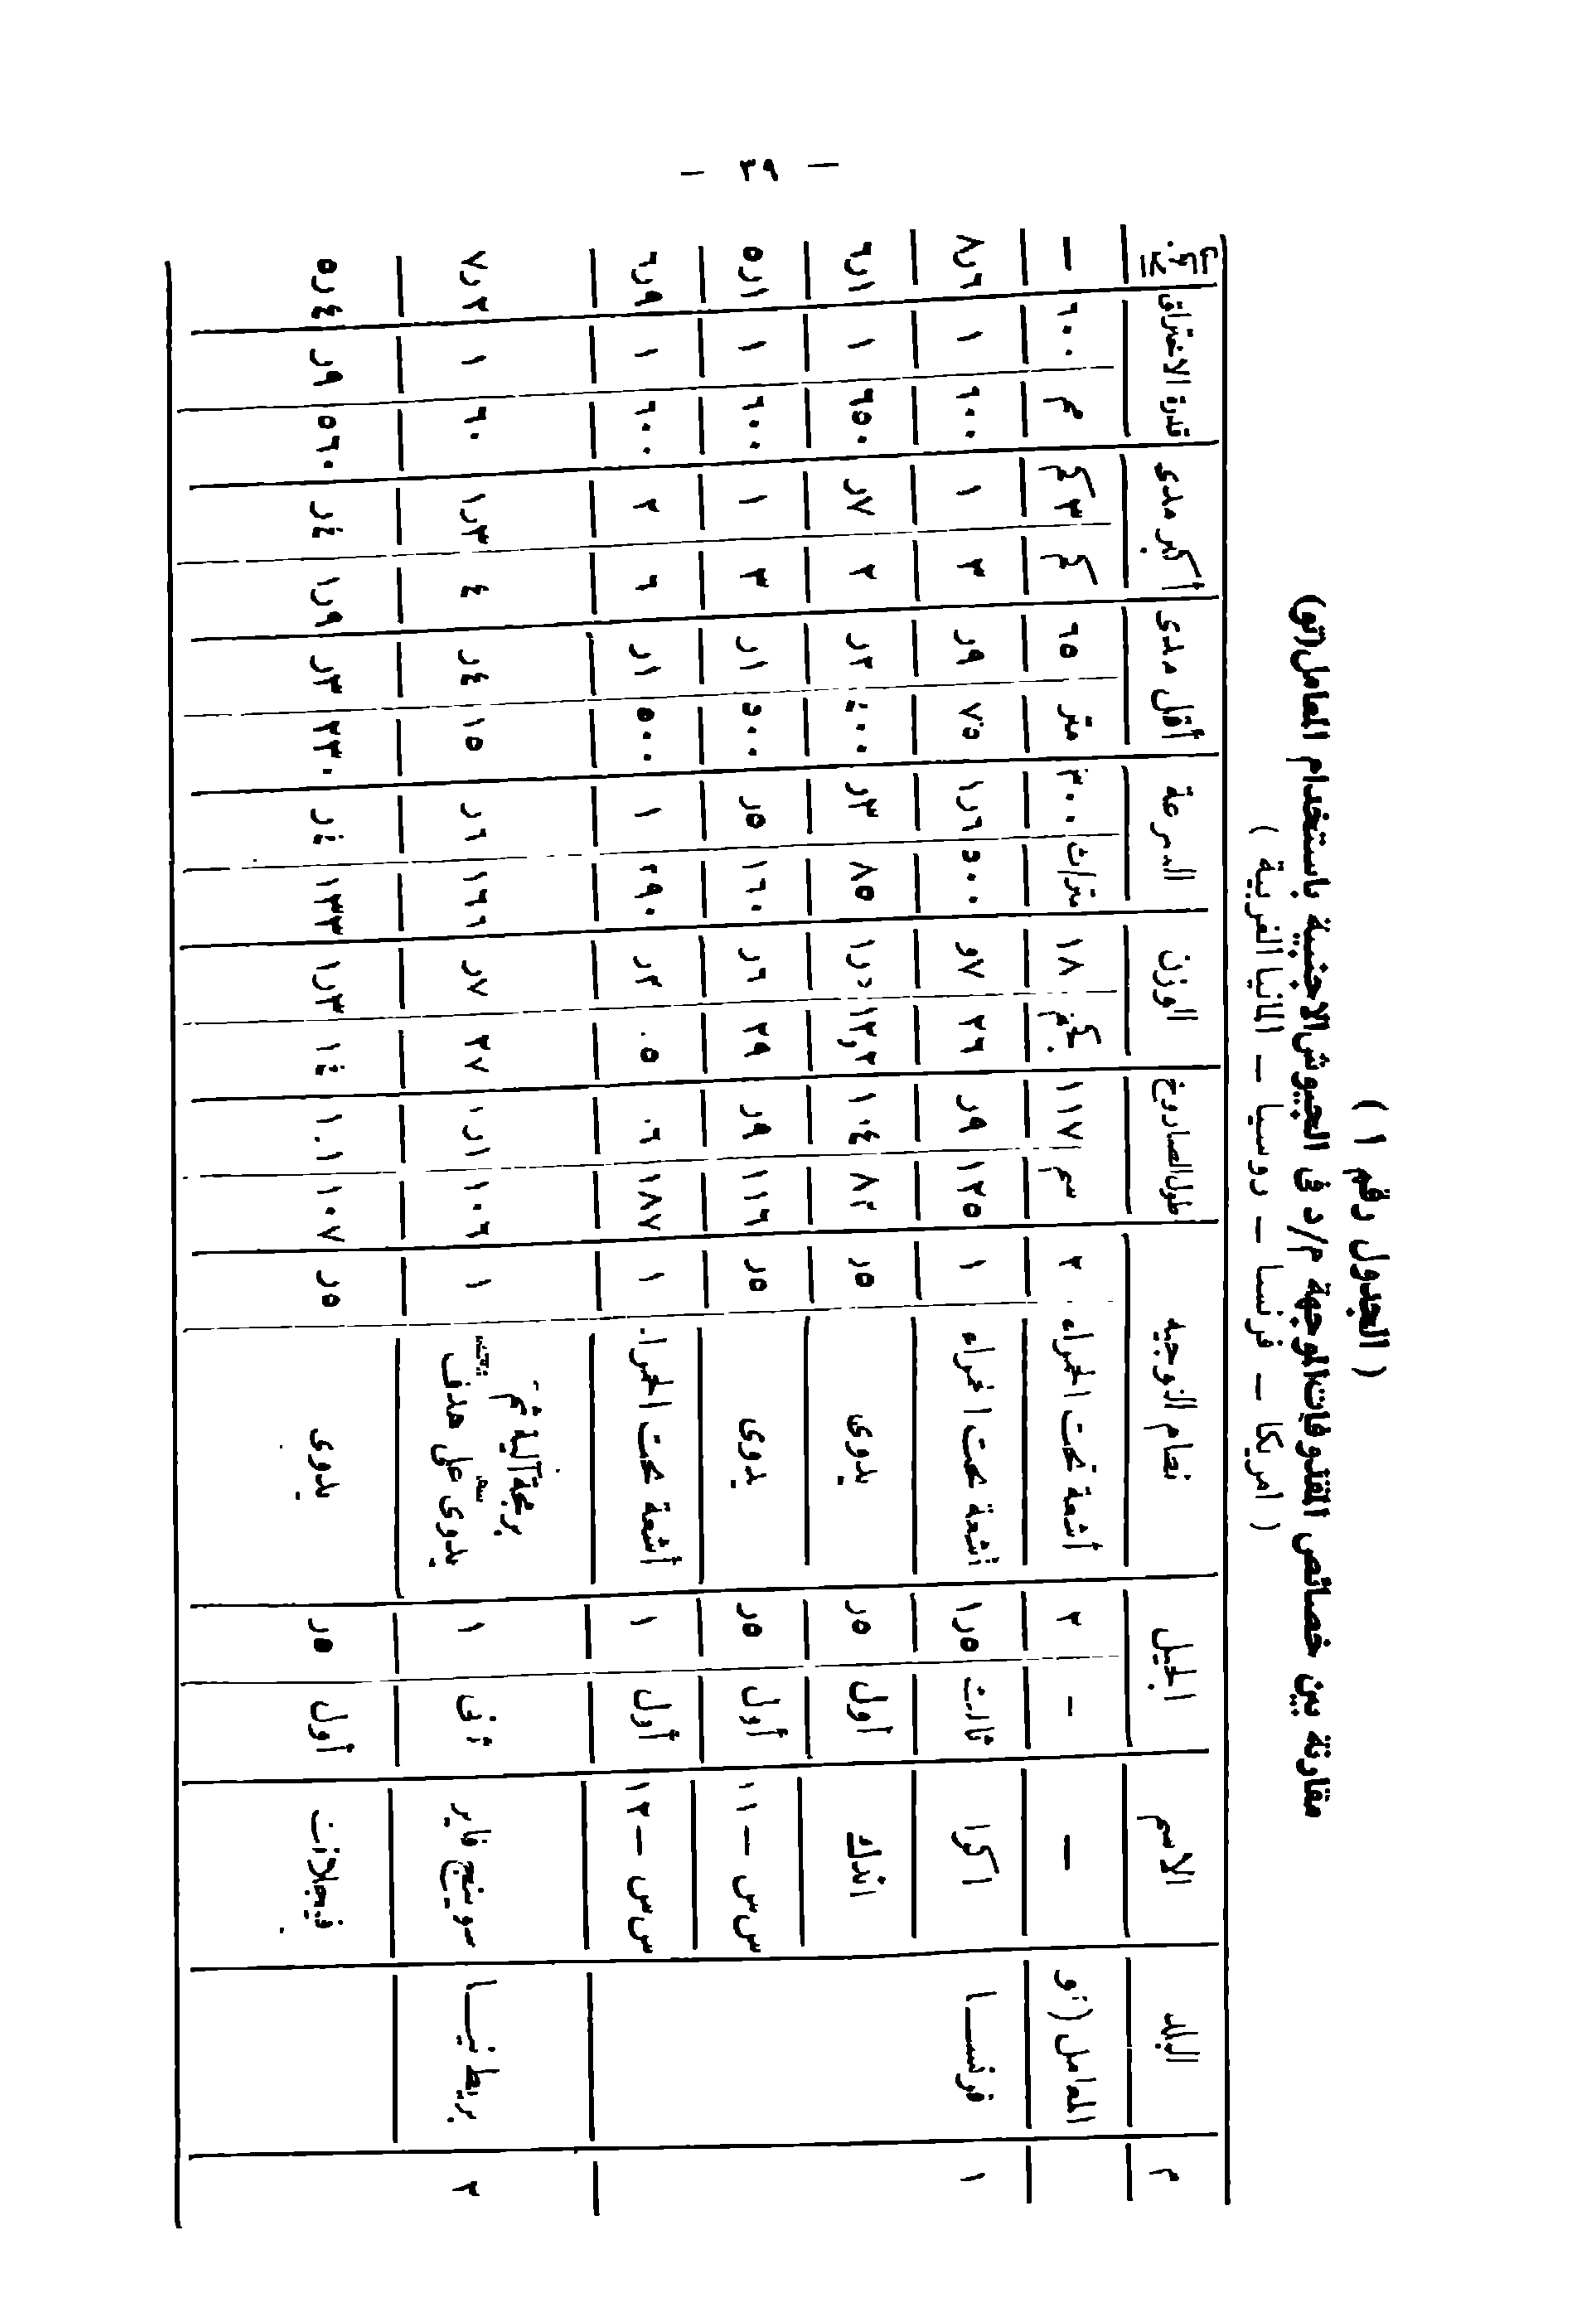 — ٣٩ —
( الجدول رقم ١ )
مقارنة بين خصائص المقذوفات الموجهة م/د فى الجيوش الاجنبية باستخدام المعامل (تو)
( امريكا — فرنسا — روسيا — المانيا الغربية )
م البلد الاسم الجيل نظام التوجيه طول الصاروخ الوزن السرعة أقل مدى أكبر مدى قدرة الاختراق
المعامل (تو — - ٢ أشعة تحت الحمراء ٢ سم ١١٧ كجم ١٨ متر/ث ٣٠٠ متر ٦٥ كم ٣ كم م ٦٠٠ —
١ فرنسا اكرا ثالث ١ر٥ أشعة تحت الحمراء ١ ١٢٥ ر٩ ٢٦ و٧ ٥٠٠ ١ر٦ ٧٥ ر٩ ٣ ١ ٦٠٠ ١ ٨ر٦
انتاك أول ر٥ يدوى ر٥ ٨٢ ١٠٤ ١٢,٢ ٨٥ ر٣ ٤٠٠ ر٢ ٢ ر٧ ٦٥٠ ١ ٦ر١
س س — ١١ أول ر٥ يدوى ر٥ ١١٦ ر٩ ٢٩ ر٦ ١٦٠ ر٥ ٥٠٠ ر١ ٣ ١ ٦٠٠ ١ ٥ر١
س س — ١٢ أول ١ أشعة تحت الحمراء ١ ١٨٧ ٠٦ ر٢ ١ ٥٠٠ ر١ ٦ ٢ ٦٠٠ ١ ٦ر٩
٢ بريطانيا سوينج فاير ١ برمجة آلية ثم
يدوى على هدف
١ ١٠٦ ١ر١ ٢٧ ر٧ ر٦ ١٥ ر٤ ٤ ١ر٣ ٦٠ ١ ٧ر٢
فيجلانت أول ر٥ يدوى ر٥ ١٠٧ ١٠١ ١٤ ١ر٣ ١٣٣ ر٤ ٢٣٠ ر٣ ١ر٩ ر٤ ٥٦٠ ر٩ ٥ر٤